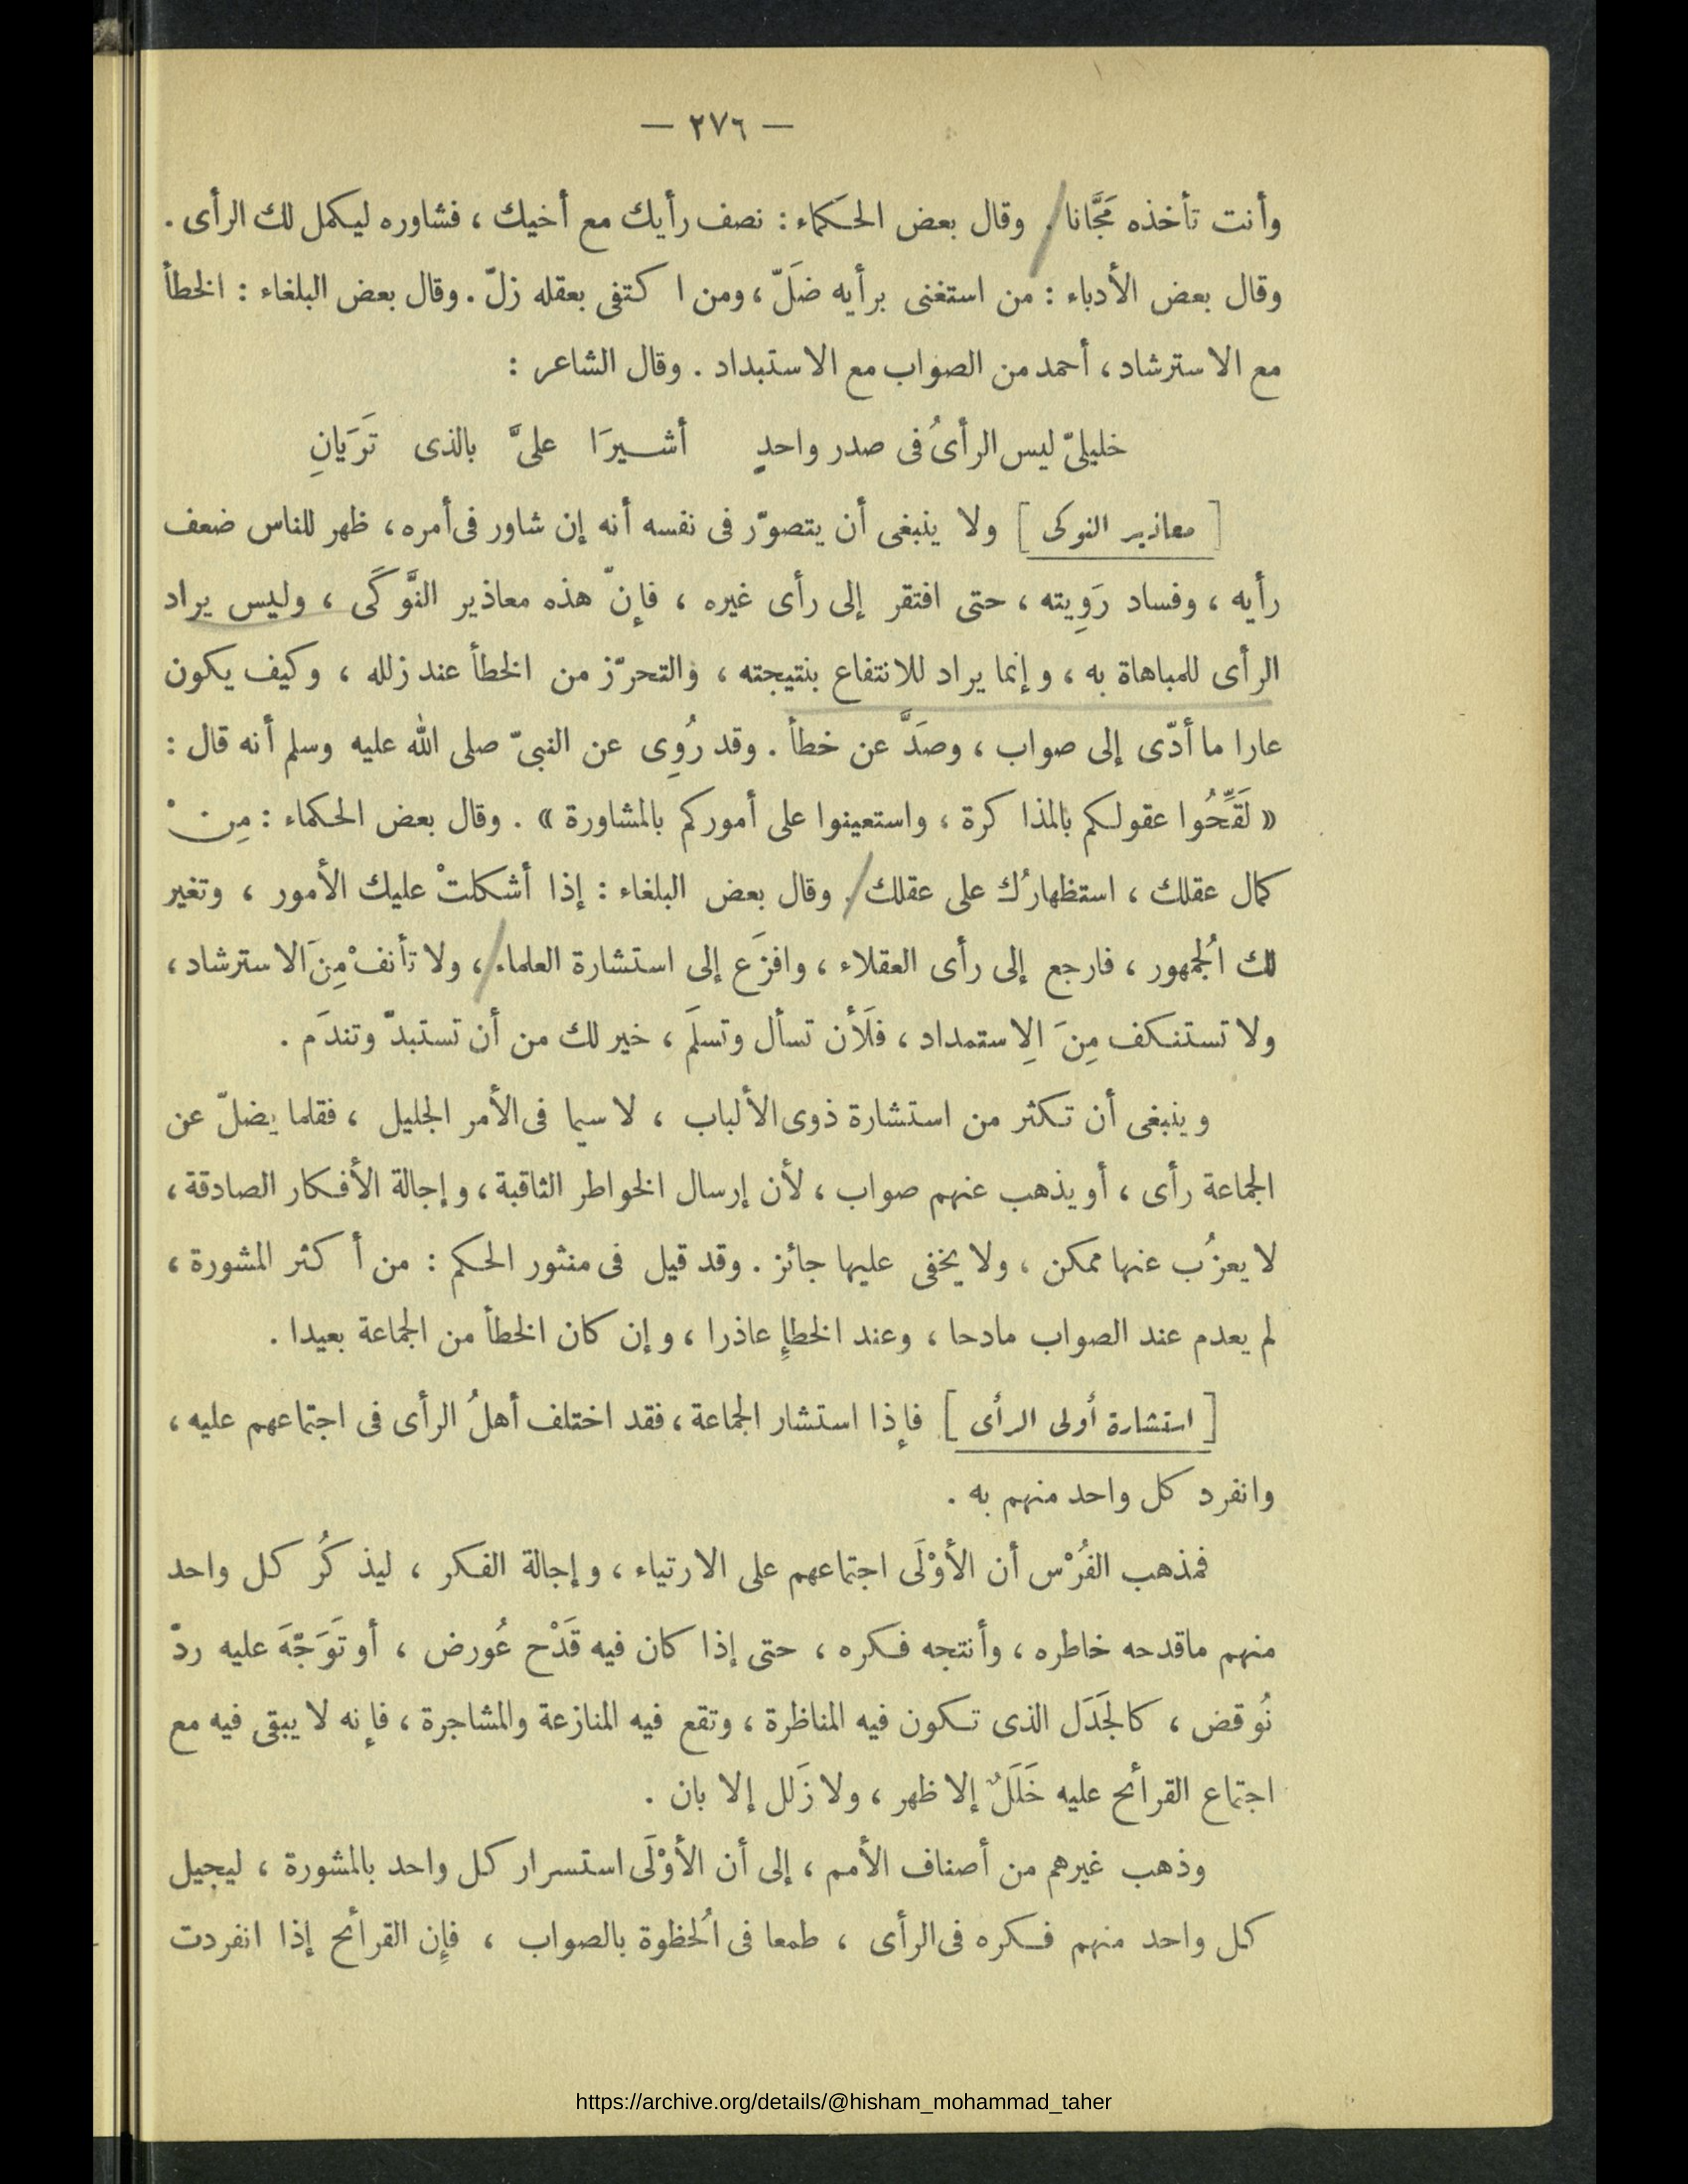 — ٢٧٦ —
وأنت تأخذه مَجَّانا . وقال بعض الحكماء : نصف رأيك مع أخيك ، فشاوره ليكمل لك الرأى .
وقال بعض الأدباء : من استغنى برأيه ضَلّ ، ومن اكتفى بعقله زلّ . وقال بعض البلغاء : الخطأ
مع الاسترشاد ، أحمد من الصواب مع الاستبداد . وقال الشاعر :
خليلىّ ليس الرأىُ فى صدر واحدٍ أشــيرَا علىَّ بالذى تَرَيانِ
[ معاذير النوكى ] ولا ينبغى أن يتصوّر فى نفسه أنه إن شاور فى أمره ، ظهر للناس ضعف
رأيه ، وفساد رَوِيته ، حتى افتقر إلى رأى غيره ، فإنّ هذه معاذير النَّوكَى ، وليس يراد
الرأى للمباهاة به ، وإنما يراد للانتفاع بنتيجته ، والتحرّز من الخطأ عند زلله ، وكيف يكون
عارا ما أدّى إلى صواب ، وصَدَّ عن خطأ . وقد رُوِى عن النبىّ صلى الله عليه وسلم أنه قال :
« لَقِّحُوا عقولكم بالمذاكرة ، واستعينوا على أموركم بالمشاورة » . وقال بعض الحكماء : مِنْ
كمال عقلك ، استظهارُك على عقلك . وقال بعض البلغاء : إذا أشكلتْ عليك الأمور ، وتغير
لك الُجمهور ، فارجع إلى رأى العقلاء ، وافزَع إلى استشارة العلماء ، ولا تأنفْ مِنَ الاسترشاد ،
ولا تستنكف مِنَ الِاستمداد ، فلَأن تسأل وتسلَم ، خير لك من أن تستبدّ وتندَم .
وينبغى أن تكثر من استشارة ذوى الألباب ، لا سيما فى الأمر الجليل ، فقلما يضلّ عن
الجماعة رأى ، أو يذهب عنهم صواب ، لأن إرسال الخواطر الثاقبة ، وإجالة الأفكار الصادقة ،
لا يعزُب عنها ممكن ، ولا يخفى عليها جائز . وقد قيل فى منثور الحكم : من أكثر المشورة ،
لم يعدم عند الصواب مادحا ، وعند الخطإِ عاذرا ، وإن كان الخطأ من الجماعة بعيدا .
[ استشارة أولى الرأى ] فإذا استشار الجماعة ، فقد اختلف أهلُ الرأى فى اجتماعهم عليه ،
وانفرد كل واحد منهم به .
فمذهب الفُرْس أن الأوْلَى اجتماعهم على الارتياء ، وإجالة الفكر ، ليذكُر كل واحد
منهم ماقدحه خاطره ، وأنتجه فكره ، حتى إذا كان فيه قَدْح عُورض ، أو تَوَجّهَ عليه ردّ
نُوقض ، كالجَدَل الذى تكون فيه المناظرة ، وتقع فيه المنازعة والمشاجرة ، فإنه لا يبقى فيه مع
اجتماع القرائح عليه خَلَلٌ إلا ظهر ، ولا زَلل إلا بان .
وذهب غيرهم من أصناف الأمم ، إلى أن الأوْلَى استسرار كل واحد بالمشورة ، ليجيل
كل واحد منهم فكره فى الرأى ، طمعا فى الُحظوة بالصواب ، فإن القرائح إذا انفردت
https://archive.org/details/@hisham_mohammad_taher